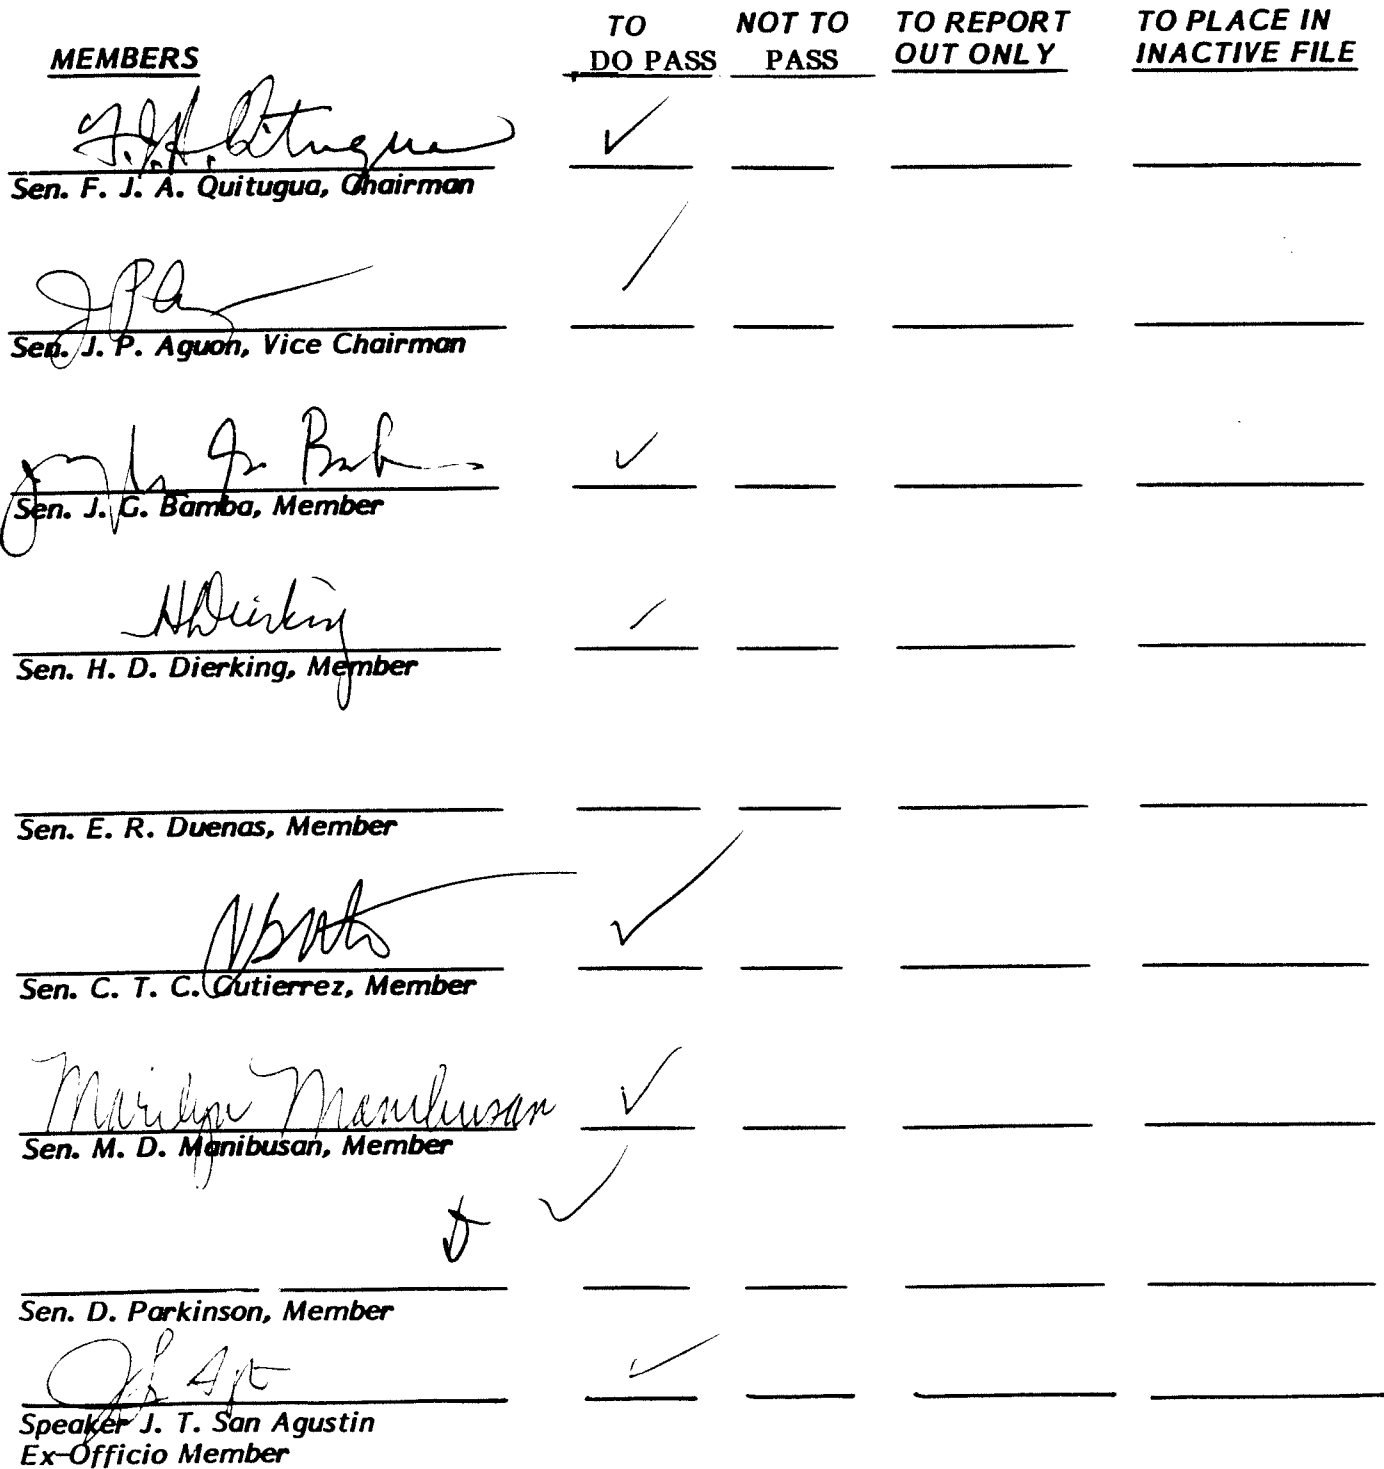 MEMBERS TO DO PASS NOT TO PASS TO REPORT OUT ONLY TO PLACE IN INACTIVE FILE
F.J.A. Quitugua ✓
Sen. F. J. A. Quitugua, Chairman
Sen. J. P. Aguon, Vice Chairman
✓
Sen. J. G. Bamba, Member
HDierking
Sen. H. D. Dierking, Member
Sen. E. R. Duenas, Member
✓
Sen. C. T. C. Gutierrez, Member
Marilyn Manibusan ✓
Sen. M. D. Manibusan, Member
✓
Sen. D. Parkinson, Member
✓
Speaker J. T. San Agustin
Ex-Officio Member